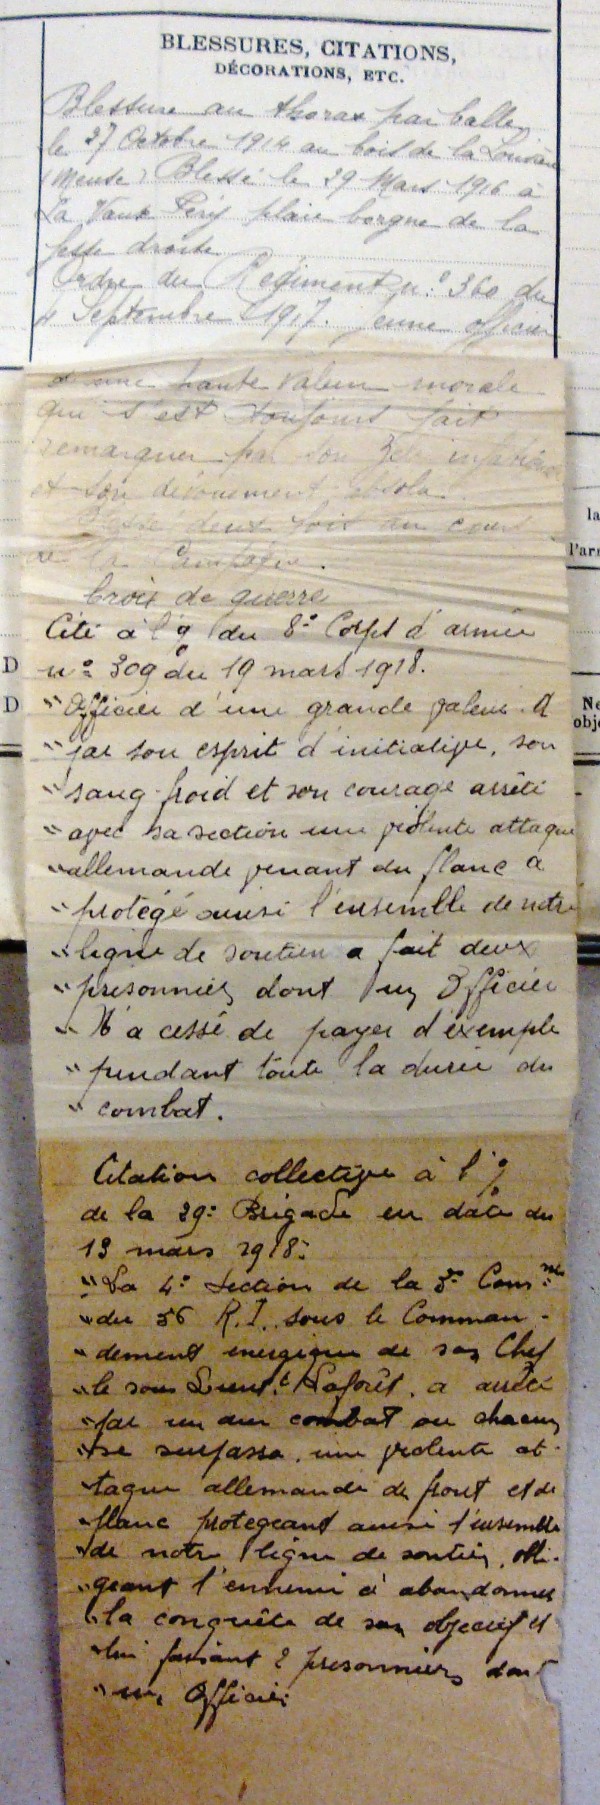 BLESSURES, CITATIONS,
DÉCORATIONS, ETC.
Blessure au thorax par balle
le 27 Octobre 1914 au bois de la Louvière
(Meuse) Blessé le 29 Mars 1916 à
La Vaux Féry plaie borgne de la
fesse droite
Ordre du Régiment n:° 360 du
4 Septembre 1917. Jeune officier
d'une haute valeur morale
qui s'est toujours fait
remarquer par son zèle
et son dévouement absolu.
Blessé deux fois au cours
de la Campagne.
Croix de guerre
Cité à l'o/ du 8e Corps d'armée
n° 309 du 19 mars 1918.
" Officier d'une grande valeur. A
" par son esprit d'initiative, son
" sang-froid et son courage arrêté
" avec sa section une violente attaque
" allemande venant du flanc a
" protégé ainsi l'ensemble de notre
" ligne de soutien a fait deux
" prisonniers dont un Officier
" N'a cessé de payer d'exemple
" pendant toute la durée du
" combat.
Citation collective à l'o/
de la 29e Brigade en date du
13 mars 1918:
" La 4e Section de la 3e Comnie
" du 56 R.I. sous le Comman-
" dement énergique de son Chef
" le sous Lieut.t Laforêt, a arrêté
" par un dur combat ou chacun
" se surpassa, une violente at-
" taque allemande de front et de
" flanc protégeant ainsi l'ensemble
" de notre ligne de soutien, obli-
" geant l'ennemi à abandonner
" la conquête de son objectif et
" lui faisant 2 prisonniers dont
" un Officier
D
D
la
l'arm
Ne
obje